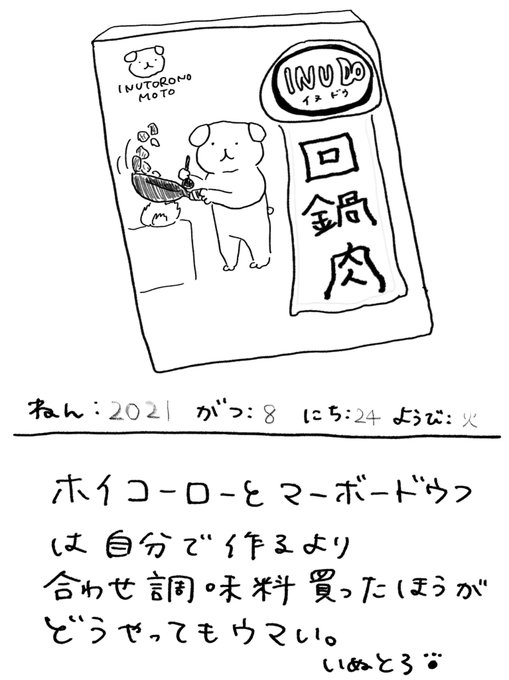 INUTORONO
MOTO
INUDO
イヌドゥ
回鍋肉
ねん:2021 がつ:8 にち:24 ようび:火
ホイコーローとマーボードウフ
は自分で作るより
合わせ調味料買ったほうが
どうやってもウマい。
いぬとろ